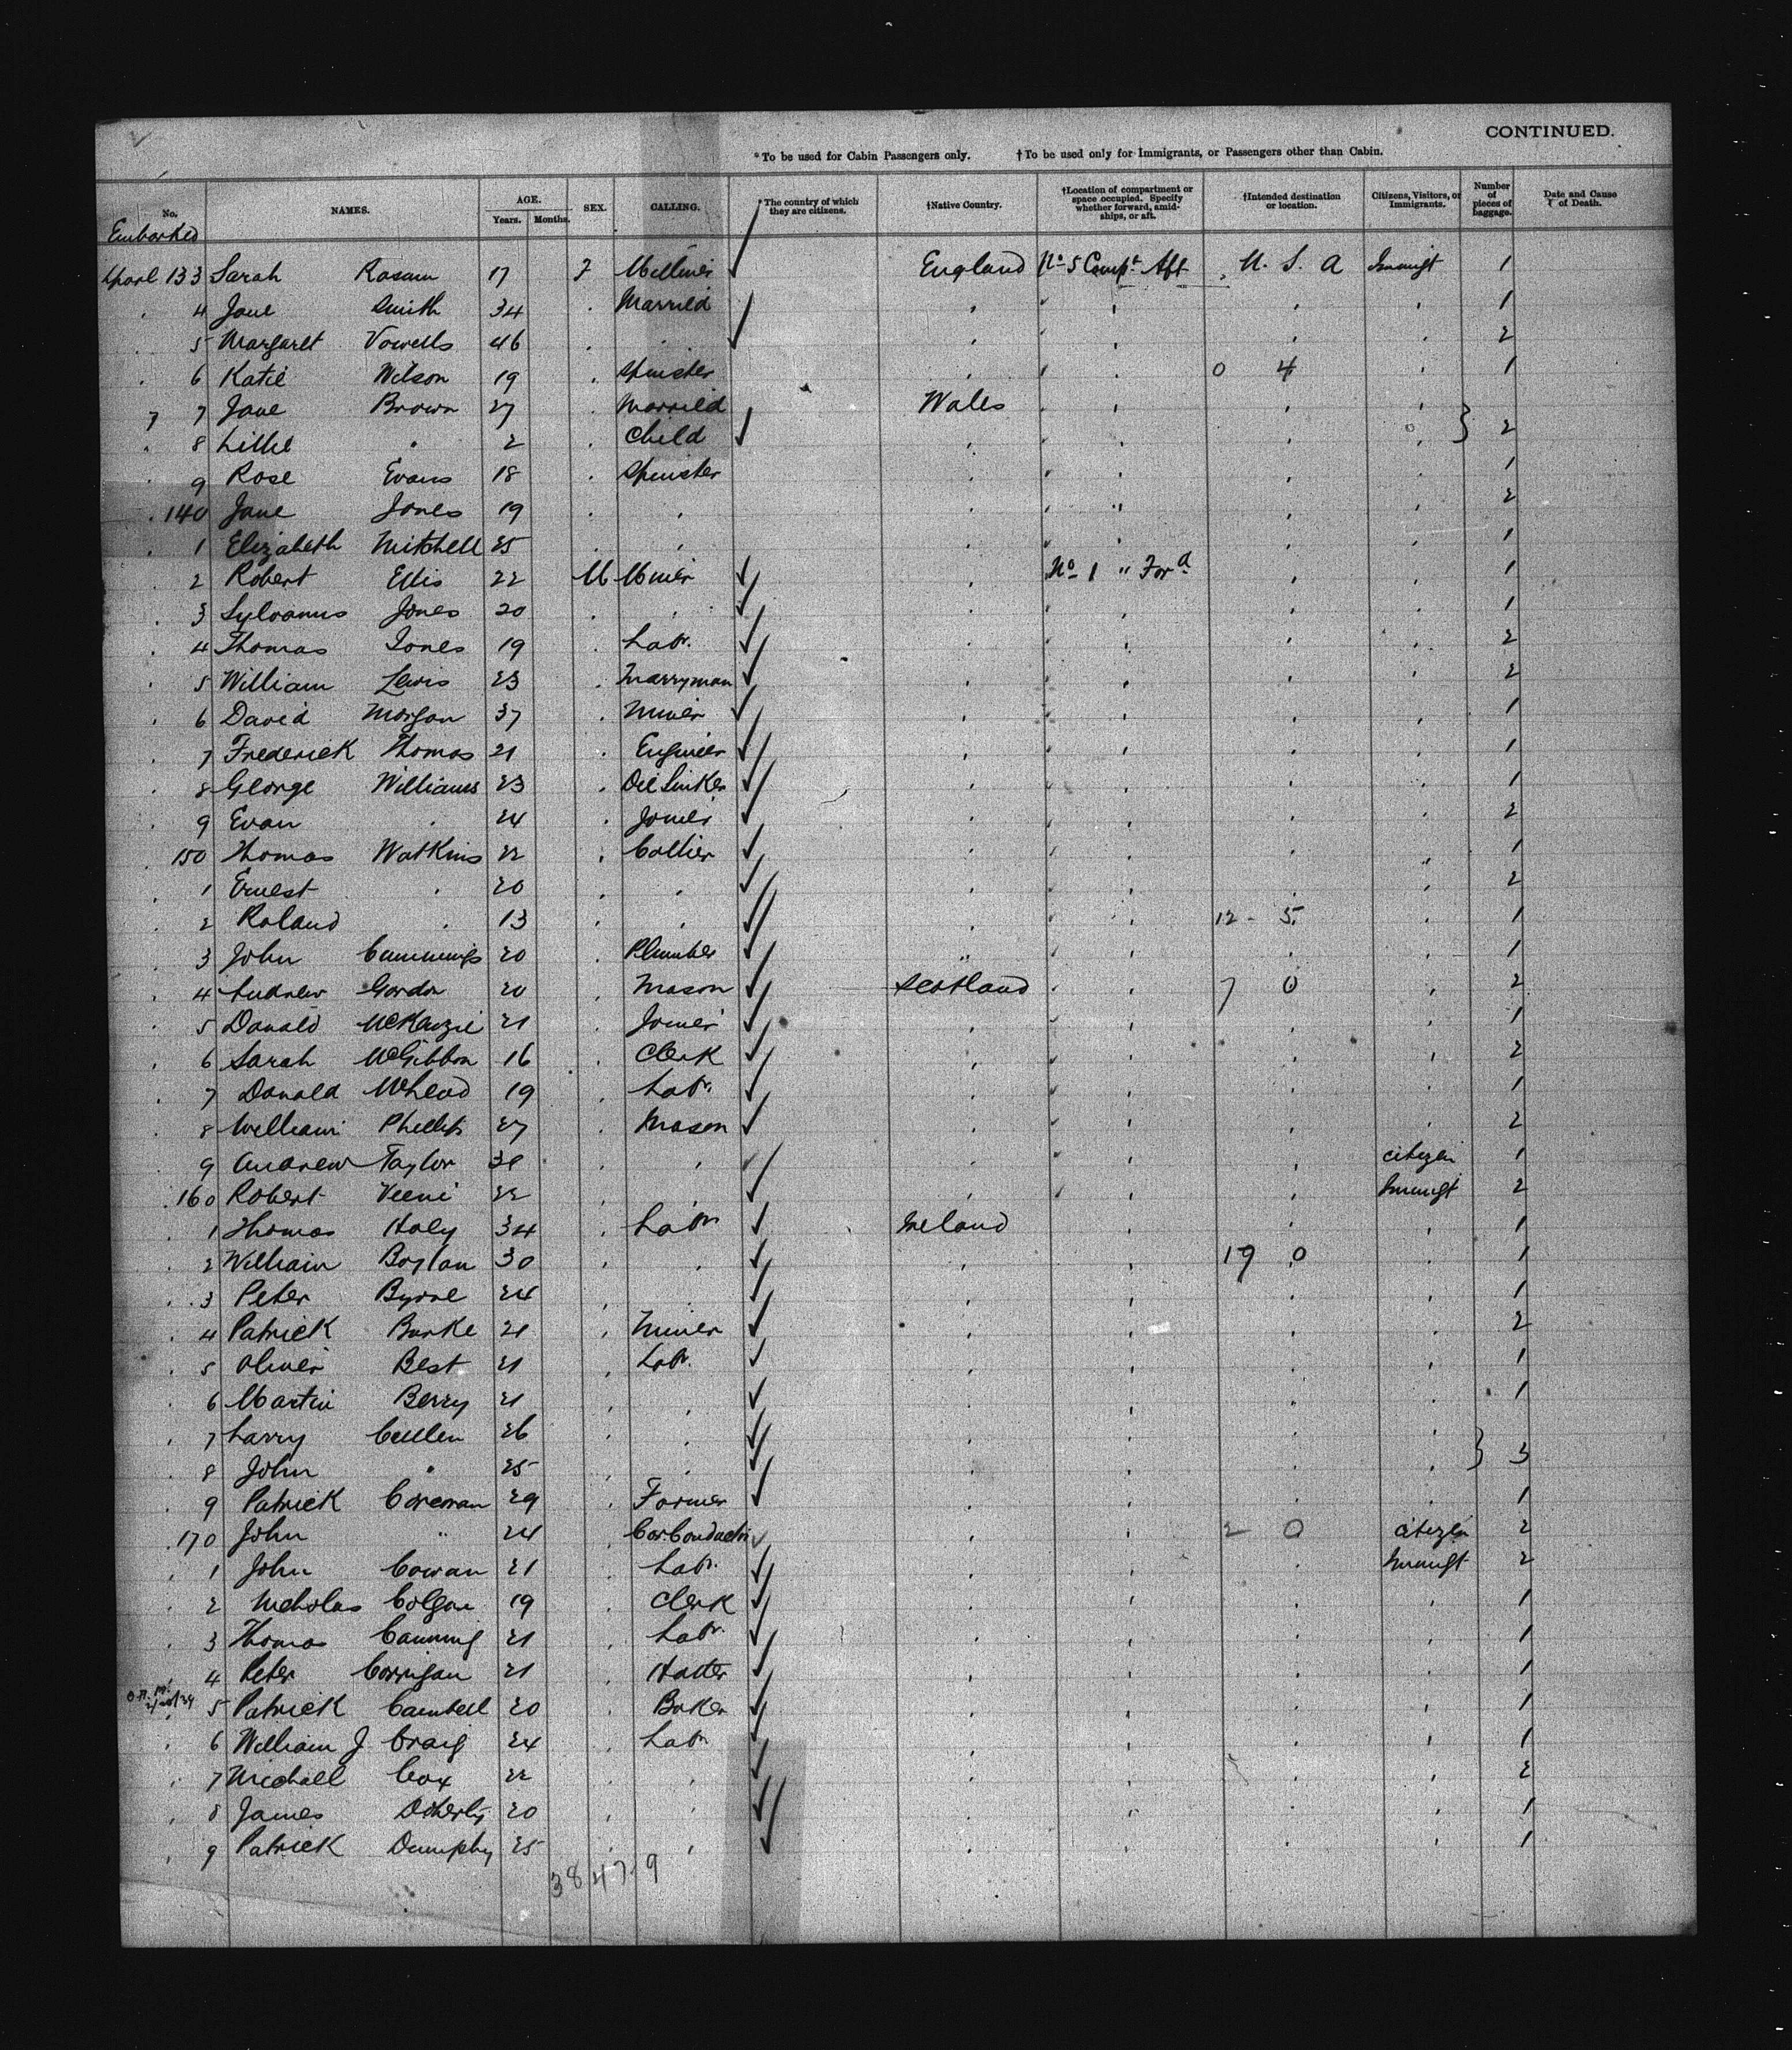 CONTINUED.
*To be used for Cabin Passengers only. †To be used only for Immigrants, or Passengers other than Cabin.
No. NAMES. AGE. Years. Months. SEX. CALLING. *The country of which they are citizens. †Native Country. †Location of compartment or space occupied. Specify whether forward, amidships, or aft. †Intended destination or location. Citizens, Visitors, or Immigrants. Number of pieces of baggage. Date and Cause of Death.
Embarked
133 Sarah Rosam 17 F Milliner England No 5 Compt Aft U. S. A Immigt 1
4 Jane Smith 34 Married 1
5 Margaret Vowells 46 2
6 Katie Wilson 19 Spinster 0 4 1
7 Jane Brown 27 Married Wales
8 Lillie " 2 Child } 2
9 Rose Evans 18 Spinster 1
140 Jane Jones 19 " 2
1 Elizabeth Mitchell 25 1
2 Robert Ellis 22 M Miner No 1 " Ford 1
3 Sylvanus Jones 20 1
4 Thomas Jones 19 Labr. 2
5 William Lewis 23 2
6 David Morgan 37 Miner 1
7 Frederick Thomas 21 Engineer 1
8 George Williams 23 Die Sinker 1
9 Evan 24 Joiner 2
150 Thomas Watkins 22 Collier 1
1 Ernest 20 2
2 Roland 13 12 - 5 1
3 John Cummings 20 Plumber " 1
4 Andrew Gordon 20 Mason Scotland 7 0 2
5 Donald McKenzie 21 Joiner 1
6 Sarah McGibbon 16 Clerk 2
7 Donald McLeod 19 Labr. 1
8 William Phillips 27 Mason 2
9 Andrew Taylor citizen 1
160 Robert 22 Immigt 2
1 Thomas Haly 34 Labr Ireland 1
2 William Boylan 30 19 0 1
3 Peter Byrne 24 1
4 Patrick Burke 21 Miner 2
5 Oliver Best 21 Labr. 1
6 Martin Berry 21 1
7 Larry Cullen 26
8 John " 25 } 3
9 Patrick Corcoran 29 Farmer 1
170 John " 24 Car Conductor 2 0 citizen 2
1 John Cowan 21 Labr. Immigt 2
2 Nicholas Colgan 19 Clerk 1
3 Thomas Canning 21 Labr. 1
4 Peter Corrigan 21 Hatter 1
5 Patrick Cambell 20 Baker 1
6 William J Craig 24 Labr 1
7 Michael Cox 22 2
8 James Doherty 20 1
9 Patrick Dumphy 25 1
38 47 9